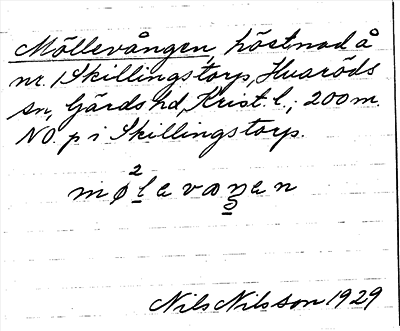 Möllevången, höstnad å
nr. 1 Skillingstorp, Huaröds
sn, Gärds hd, Krist. l.; 200 m.
NO. p i Skillingstorp.
mø²lavaŋan
Nils Nilsson 1929